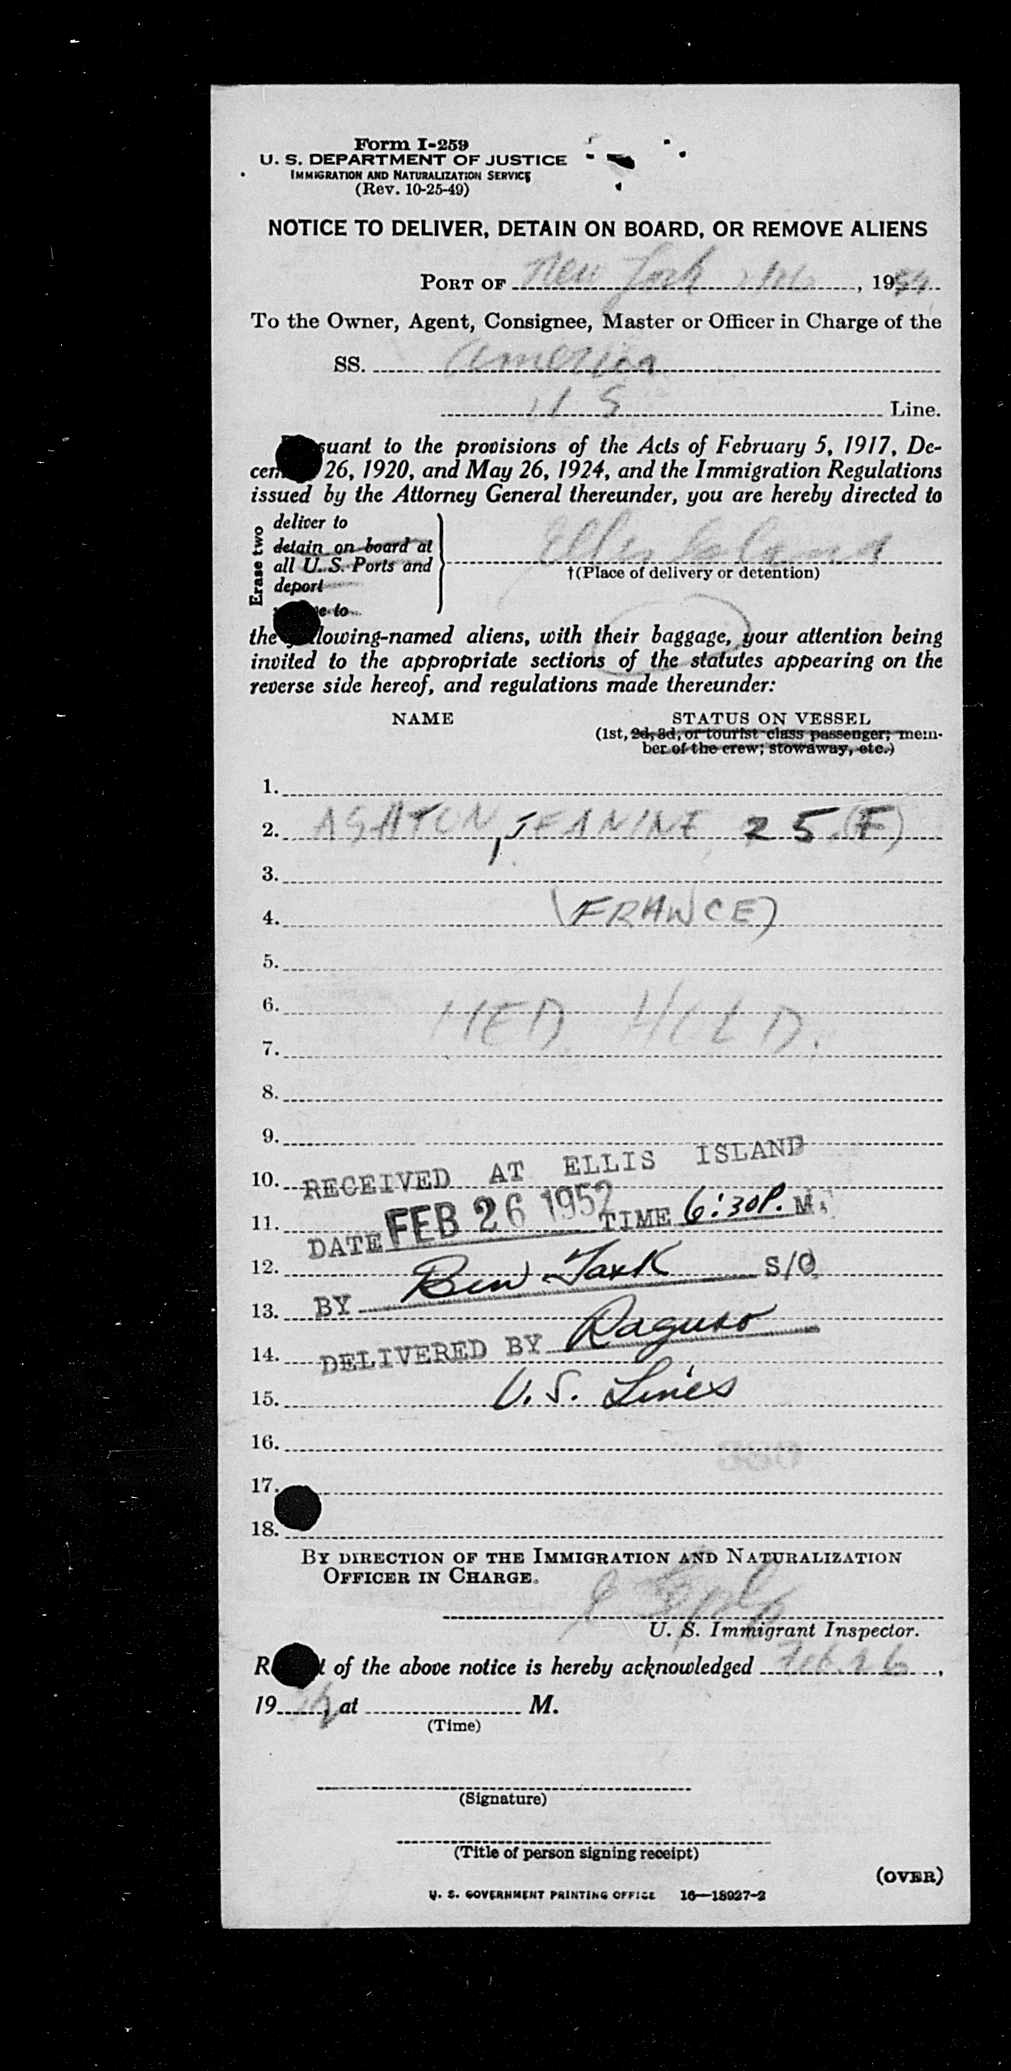 Form I-259
U. S. DEPARTMENT OF JUSTICE
IMMIGRATION AND NATURALIZATION SERVICE
(Rev. 10-25-49)
NOTICE TO DELIVER, DETAIN ON BOARD, OR REMOVE ALIENS
PORT OF New York , 19
To the Owner, Agent, Consignee, Master or Officer in Charge of the
SS. America
U S Line.
suant to the provisions of the Acts of February 5, 1917, De-
cem 26, 1920, and May 26, 1924, and the Immigration Regulations
issued by the Attorney General thereunder, you are hereby directed to
Erase two
deliver to
detain on board at
all U. S. Ports and
deport
e to
Ellis Island
†(Place of delivery or detention)
the lowing-named aliens, with their baggage, your attention being
invited to the appropriate sections of the statutes appearing on the
reverse side hereof, and regulations made thereunder:
NAME STATUS ON VESSEL
(1st, 2d, 3d, or tourist class passenger; mem-
ber of the crew; stowaway, etc.)
1.
2. ASHTON, JEANINE 25 (F)
3.
4. (FRANCE)
5.
6.
MED. HOLD.
7.
8.
9.
10. RECEIVED AT ELLIS ISLAND
11. DATE FEB 26 1952 TIME 6:30 P. M.
12.
13. BY Ben S/O
14. DELIVERED BY Raguso
15. U. S. Lines
16.
17.
18.
BY DIRECTION OF THE IMMIGRATION AND NATURALIZATION
OFFICER IN CHARGE.
U. S. Immigrant Inspector.
R t of the above notice is hereby acknowledged Feb. 26,
19 , at M.
(Time)
(Signature)
(Title of person signing receipt)
(OVER)
U. S. GOVERNMENT PRINTING OFFICE 16—18927-2